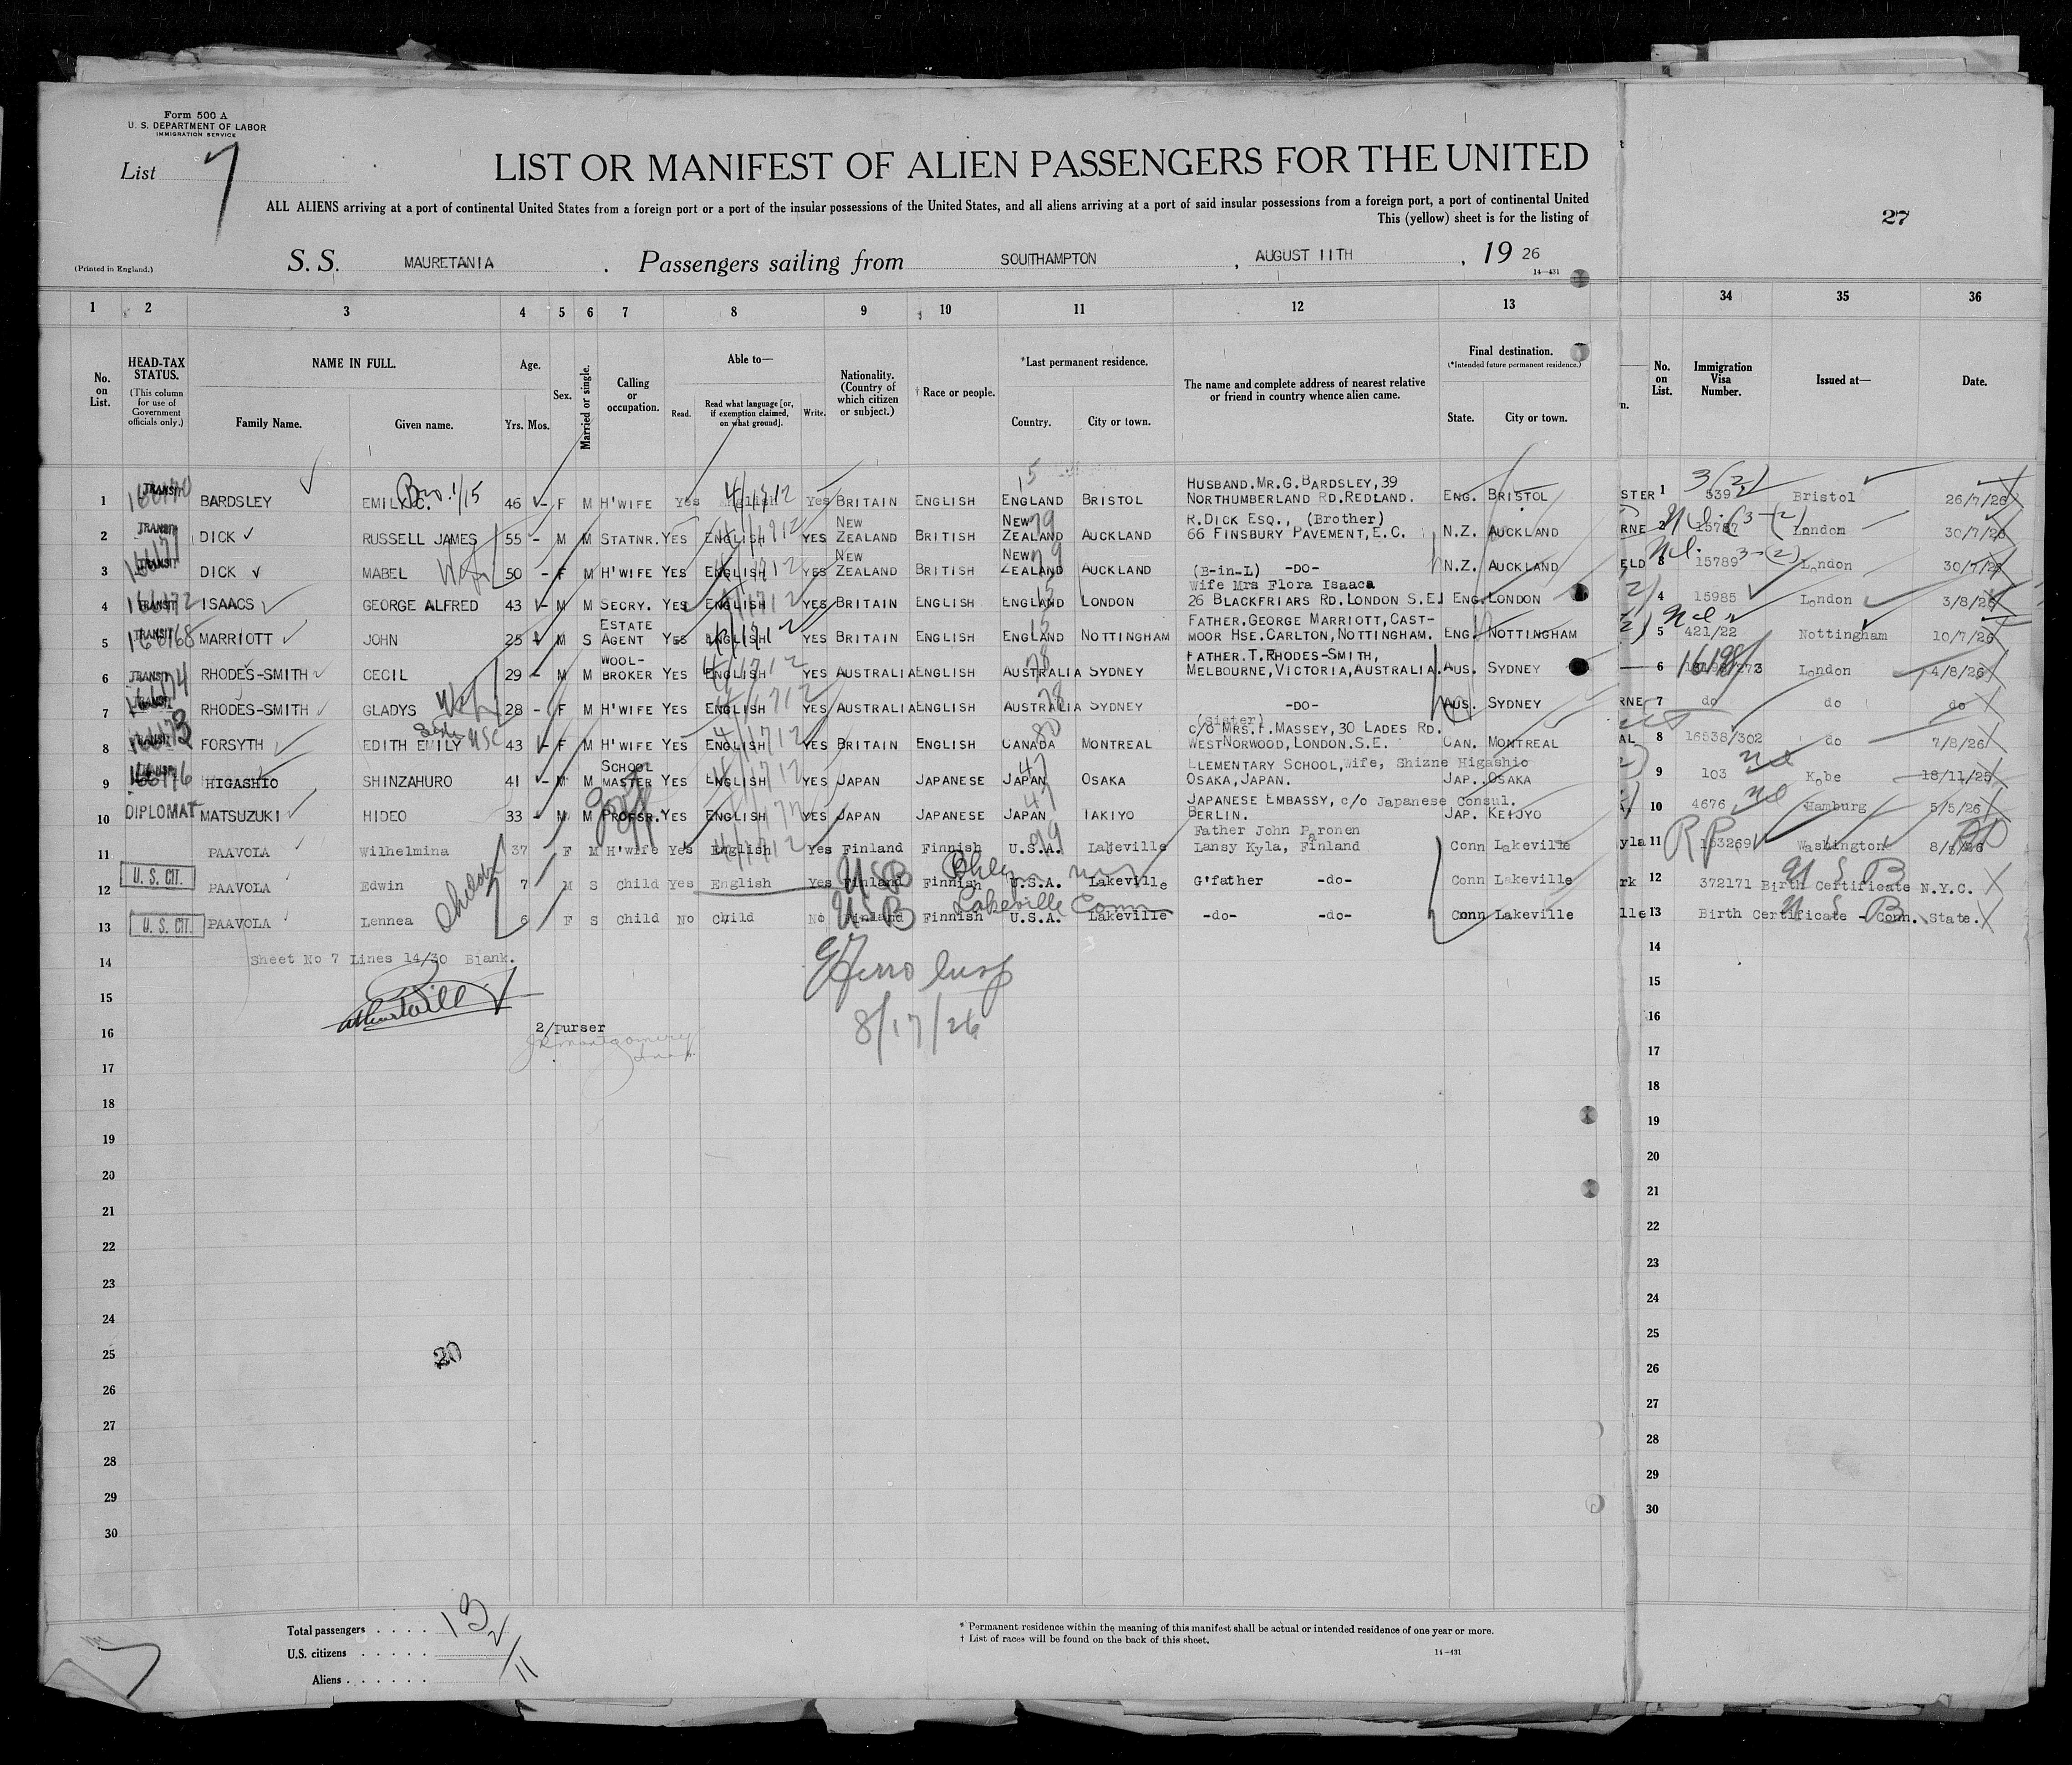 Form 500 A
U. S. DEPARTMENT OF LABOR
IMMIGRATION SERVICE
List 7
LIST OR MANIFEST OF ALIEN PASSENGERS FOR THE UNITED
ALL ALIENS arriving at a port of continental United States from a foreign port or a port of the insular possessions of the United States, and all aliens arriving at a port of said insular possessions from a foreign port, a port of continental United
This (yellow) sheet is for the listing of
27
(Printed in England.)
S. S. MAURETANIA . Passengers sailing from SOUTHAMPTON , AUGUST 11TH , 19 26
14—431
1 2 3 4 5 6 7 8 9 10 11 12 13 34 35 36
No. on List.
HEAD-TAX STATUS.
(This column for use of Government officials only.)
NAME IN FULL.
Family Name. Given name.
Age.
Yrs. Mos.
Sex.
Married or single.
Calling or occupation.
Able to—
Read. Read what language [or, if exemption claimed, on what ground]. Write.
Nationality. (Country of which citizen or subject.)
† Race or people.
*Last permanent residence.
Country. City or town.
The name and complete address of nearest relative or friend in country whence alien came.
Final destination.
(*Intended future permanent residence.)
State. City or town.
No. on List.
Immigration Visa Number.
Issued at—
Date.
1 TRANSIT BARDSLEY EMILY C. 46 F M H'WIFE Yes English Yes BRITAIN ENGLISH ENGLAND BRISTOL HUSBAND.MR.G.BARDSLEY,39 NORTHUMBERLAND RD.REDLAND. ENG. BRISTOL STER 1 539 Bristol 26/7/26
2 TRANSIT DICK RUSSELL JAMES 55 - M M STATNR. YES ENGLISH YES NEW ZEALAND BRITISH NEW ZEALAND AUCKLAND R.DICK ESQ., (Brother) 66 FINSBURY PAVEMENT,E.C. N.Z. AUCKLAND RNE 2 15787 London 30/7/26
3 TRANSIT DICK MABEL Wife 50 - F M H'WIFE YES ENGLISH YES NEW ZEALAND BRITISH NEW ZEALAND AUCKLAND (B-in-L) -DO- N.Z. AUCKLAND ELD 3 15789 London 30/7/26
4 TRANSIT ISAACS GEORGE ALFRED 43 - M M SECRY. YES ENGLISH YES BRITAIN ENGLISH ENGLAND LONDON Wife Mrs Flora Isaacs 26 BLACKFRIARS RD.LONDON S.E. ENG. LONDON 4 15985 London 3/8/26
5 TRANSIT MARRIOTT JOHN 25 M S ESTATE AGENT YES ENGLISH YES BRITAIN ENGLISH ENGLAND NOTTINGHAM FATHER.GEORGE MARRIOTT,CAST- MOOR HSE.CARLTON,NOTTINGHAM. ENG. NOTTINGHAM 5 421/22 Nottingham 10/7/26
6 TRANSIT RHODES-SMITH CECIL 29 - M M WOOL- BROKER YES ENGLISH YES AUSTRALIA ENGLISH AUSTRALIA SYDNEY FATHER.T.RHODES-SMITH, MELBOURNE,VICTORIA,AUSTRALIA. AUS. SYDNEY 6 London 4/8/26
7 RHODES-SMITH GLADYS Wife 28 - F M H'WIFE YES ENGLISH YES AUSTRALIA ENGLISH AUSTRALIA SYDNEY -DO- AUS. SYDNEY RNE 7 do do do
8 FORSYTH EDITH EMILY 43 - F M H'WIFE YES ENGLISH YES BRITAIN ENGLISH CANADA MONTREAL (Sister) c/o MRS.F.MASSEY,30 LADES RD. WESTNORWOOD,LONDON.S.E. CAN. MONTREAL AL 8 16538/302 do 7/8/26
9 HIGASHIO SHINZAHURO 41 - M M SCHOOL MASTER YES ENGLISH YES JAPAN JAPANESE JAPAN OSAKA ELEMENTARY SCHOOL,Wife, Shizne Higashio OSAKA,JAPAN. JAP. OSAKA 9 103 Kobe 18/11/25
10 DIPLOMAT MATSUZUKI HIDEO 33 - M M PROFSR. YES ENGLISH YES JAPAN JAPANESE JAPAN TAKIYO JAPANESE EMBASSY, c/o Japanese Consul. BERLIN. JAP. KEIJYO 10 4676 Hamburg 5/5/26
11 PAAVOLA Wilhelmina 37 F M H'wife Yes English Yes Finland Finnish U.S.A. Lakeville Father John Paronen Lansy Kyla, Finland Conn Lakeville yla 11 RP 153269 Washington 8/5/26
12 U. S. CIT. PAAVOLA Edwin 7 M S Child Yes English Yes Finland USB Finnish U.S.A. Lakeville G'father -do- Conn Lakeville rk 12 372171 Birth Certificate N.Y.C. USB
13 U. S. CIT. PAAVOLA Lennea 6 F S Child No Child No Finland USB Finnish U.S.A. Lakeville -do- -do- Conn Lakeville lle 13 Birth Certificate - Conn. State. USB
Lakeville Conn
14 Sheet No 7 Lines 14/30 Blank. 14
15 15
16 2/Purser 16
8/17/26
17 17
18 18
19 19
20 20
21 21
22 22
23 23
24 24
25 20 25
26 26
27 27
28 28
29 29
30 30
Total passengers . . . . 13
U.S. citizens . . . . . 2
Aliens . . . . . . 11
* Permanent residence within the meaning of this manifest shall be actual or intended residence of one year or more.
† List of races will be found on the back of this sheet.
14-431
7